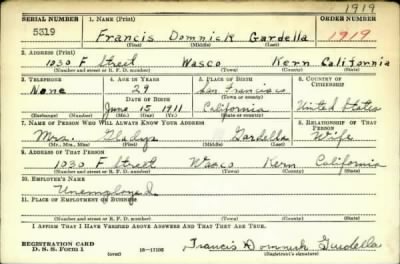 1919
SERIAL NUMBER 1. NAME (Print) ORDER NUMBER
5319 Francis Domnick Gardella 1919
(First) (Middle) (Last)
2. ADDRESS (Print)
1030 F Street Wasco Kern California
(Number and street or R. F. D. number) (Town) (County) (State)
3. TELEPHONE 4. AGE IN YEARS 5. PLACE OF BIRTH 6. COUNTRY OF CITIZENSHIP
None 29 San Francisco
DATE OF BIRTH (Town or county)
June 15 1911 California United States
(Exchange) (Number) (Mo.) (Day) (Yr.) (State or country)
7. NAME OF PERSON WHO WILL ALWAYS KNOW YOUR ADDRESS 8. RELATIONSHIP OF THAT PERSON
Mrs. Gladys Gardella Wife
(Mr., Mrs., Miss) (First) (Middle) (Last)
9. ADDRESS OF THAT PERSON
1030 F Street Wasco Kern California
(Number and street or R. F. D. number) (Town) (County) (State)
10. EMPLOYER'S NAME
Unemployed
11. PLACE OF EMPLOYMENT OR BUSINESS
(Number and street or R. F. D. number) (Town) (County) (State)
I AFFIRM THAT I HAVE VERIFIED ABOVE ANSWERS AND THAT THEY ARE TRUE.
REGISTRATION CARD
D. S. S. Form 1 (over) Francis Domnick Gardella
(Registrant's signature)